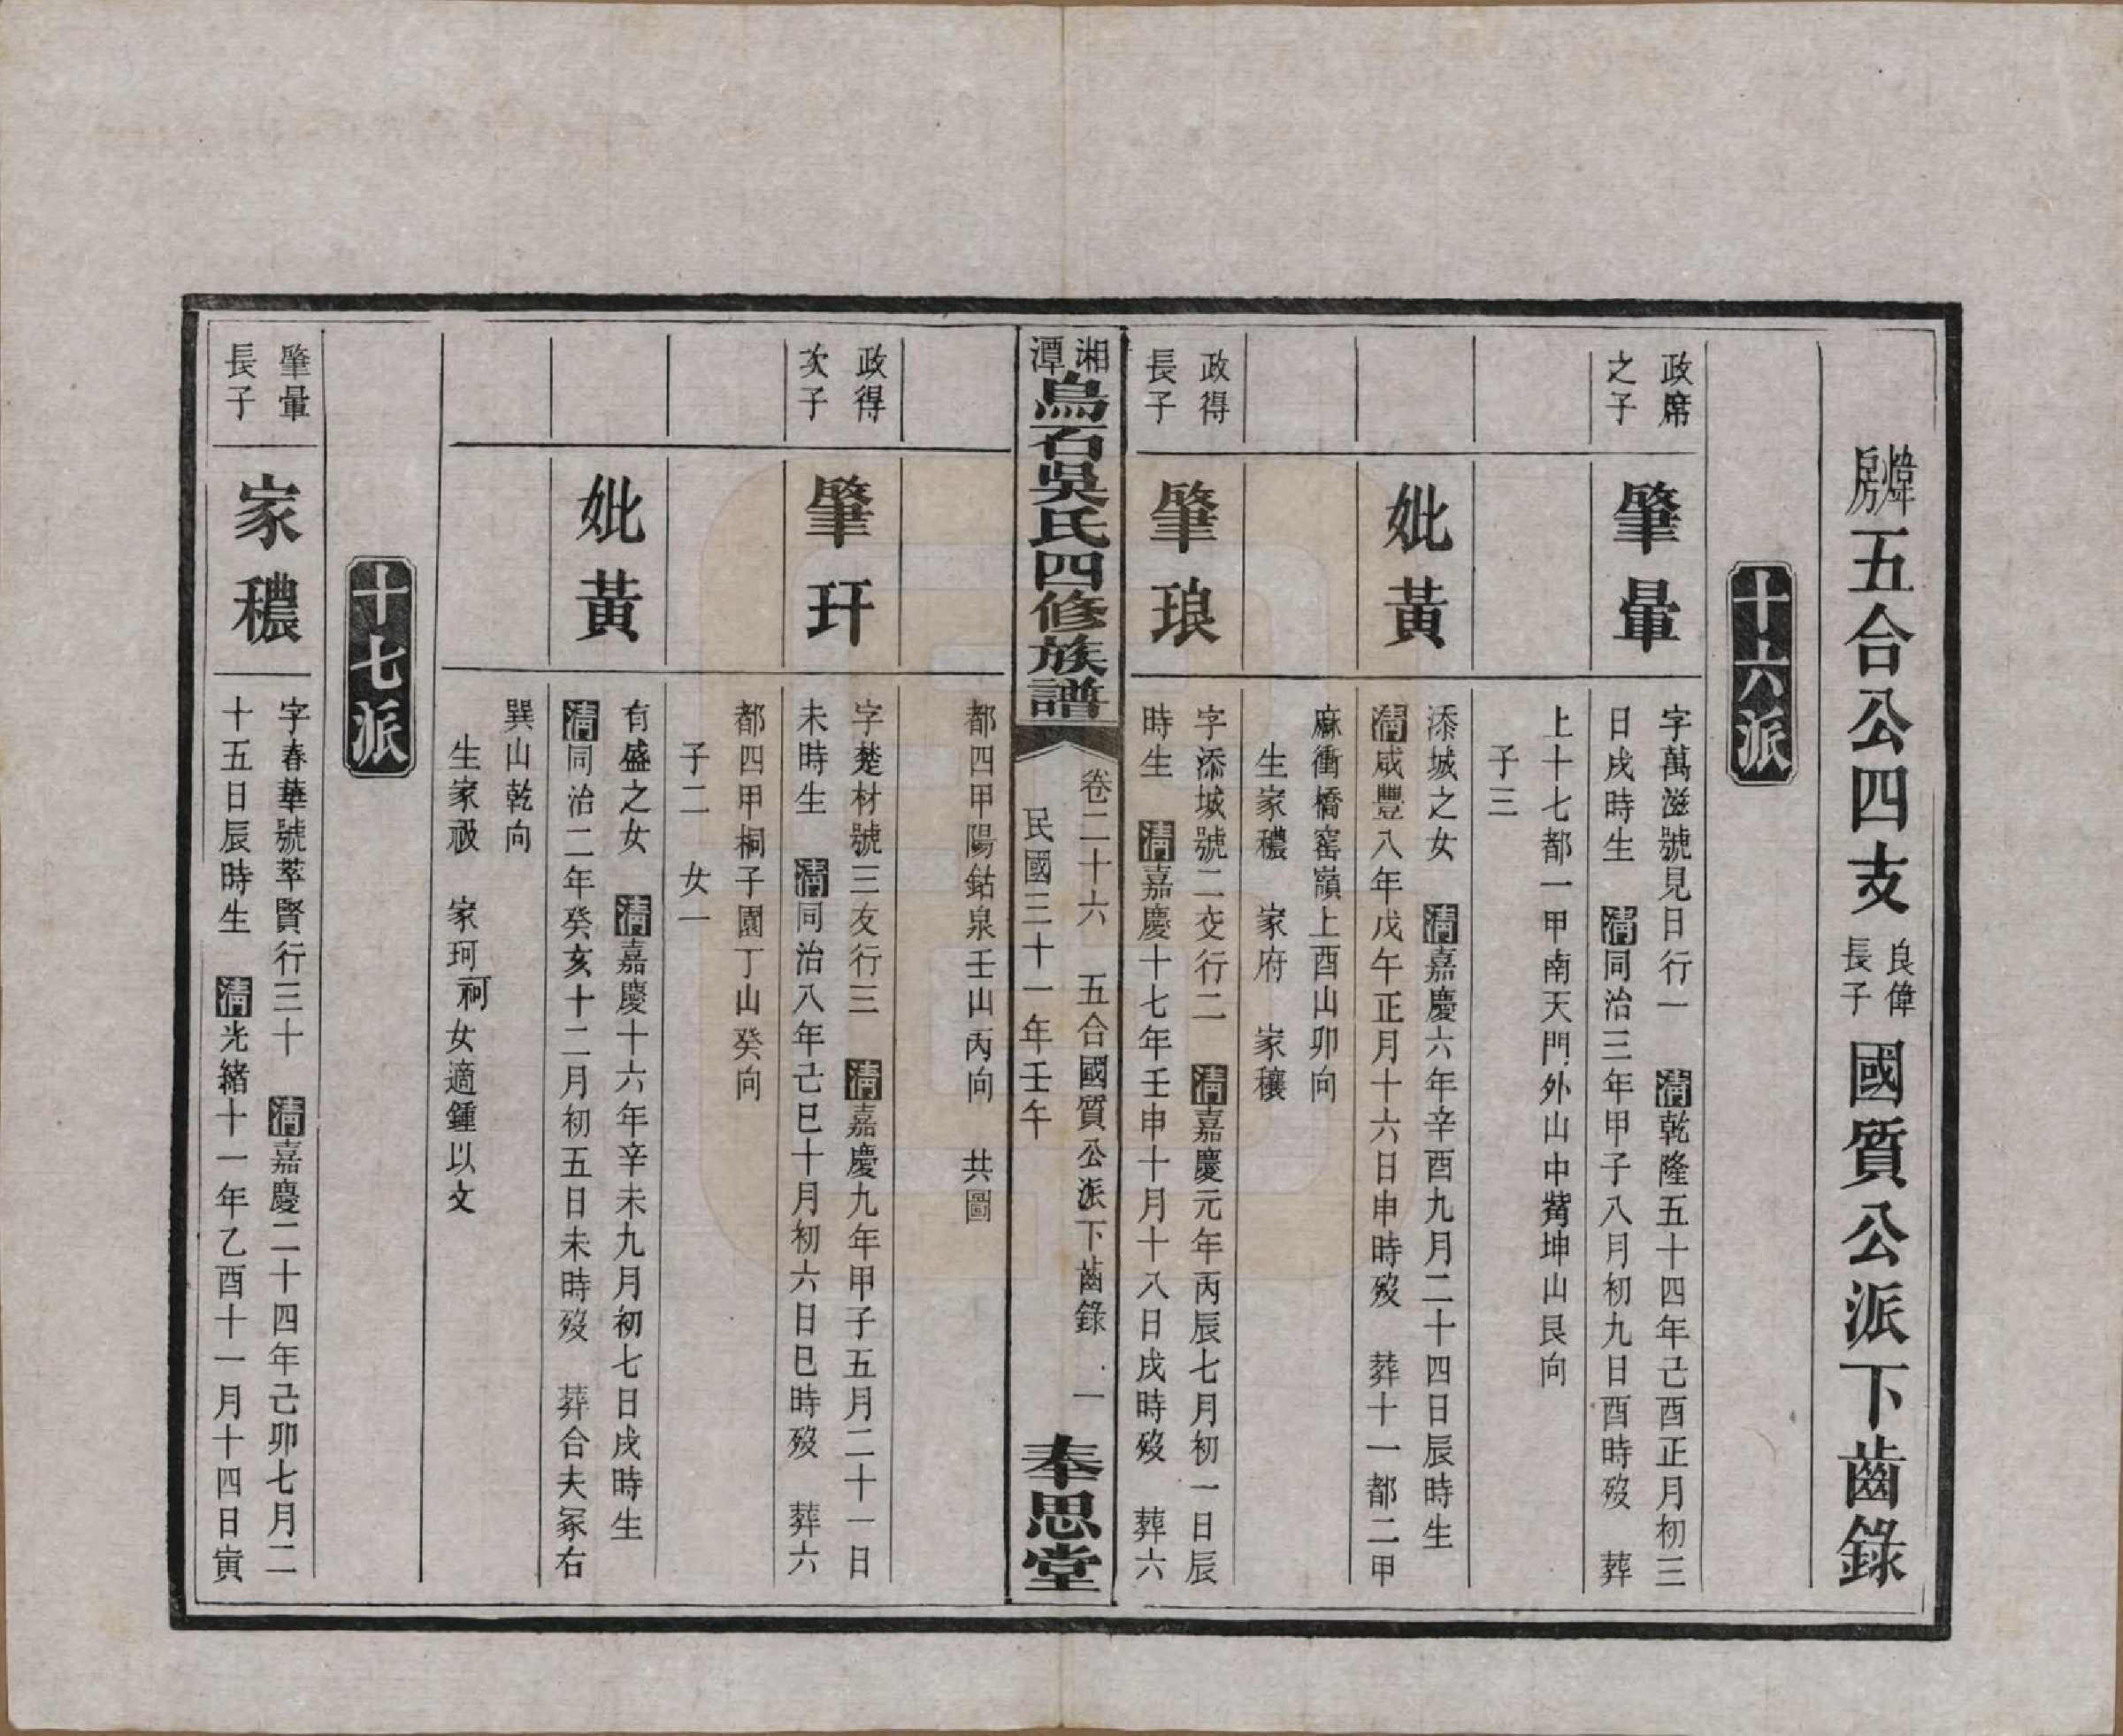 煒房五合公四支良偉長子國質公派下齒錄
十六派
政席之子
肇暈
字萬滋號見日行一　清乾隆五十四年己酉正月初三
日戌時生　清同治三年甲子八月初九日酉時歿　葬
上十七都一甲南天門外山中觜坤山艮向
子三
妣黃
添城之女　清嘉慶六年辛酉九月二十四日辰時生
清咸豐八年戊午正月十六日申時歿　葬十一都二甲
麻衝橋窑嶺上酉山卯向
生家穠　家府　家穰
政得長子
肇琅
字添城號二交行二　清嘉慶元年丙辰七月初一日辰
時生　清嘉慶十七年壬申十月十八日戌時歿　葬六
湘潭烏石吳氏四修族譜
卷二十六　五合國質公派下齒錄　一
民國三十一年壬午
奉思堂
都四甲陽鈷泉壬山丙向　共圖
政得次子
肇玕
字楚材號三友行三　清嘉慶九年甲子五月二十一日
未時生　清同治八年己巳十月初六日巳時歿　葬六
都四甲桐子園丁山癸向
子二　女一
妣黃
有盛之女　清嘉慶十六年辛未九月初七日戌時生
清同治二年癸亥十二月初五日未時歿　葬合夫冢右
巽山乾向
生家祓　家珂祠女適鍾以文
十七派
肇暈長子
家穠
字春華號萃賢行三十　清嘉慶二十四年己卯七月二
十五日辰時生　清光緒十一年乙酉十一月十四日寅